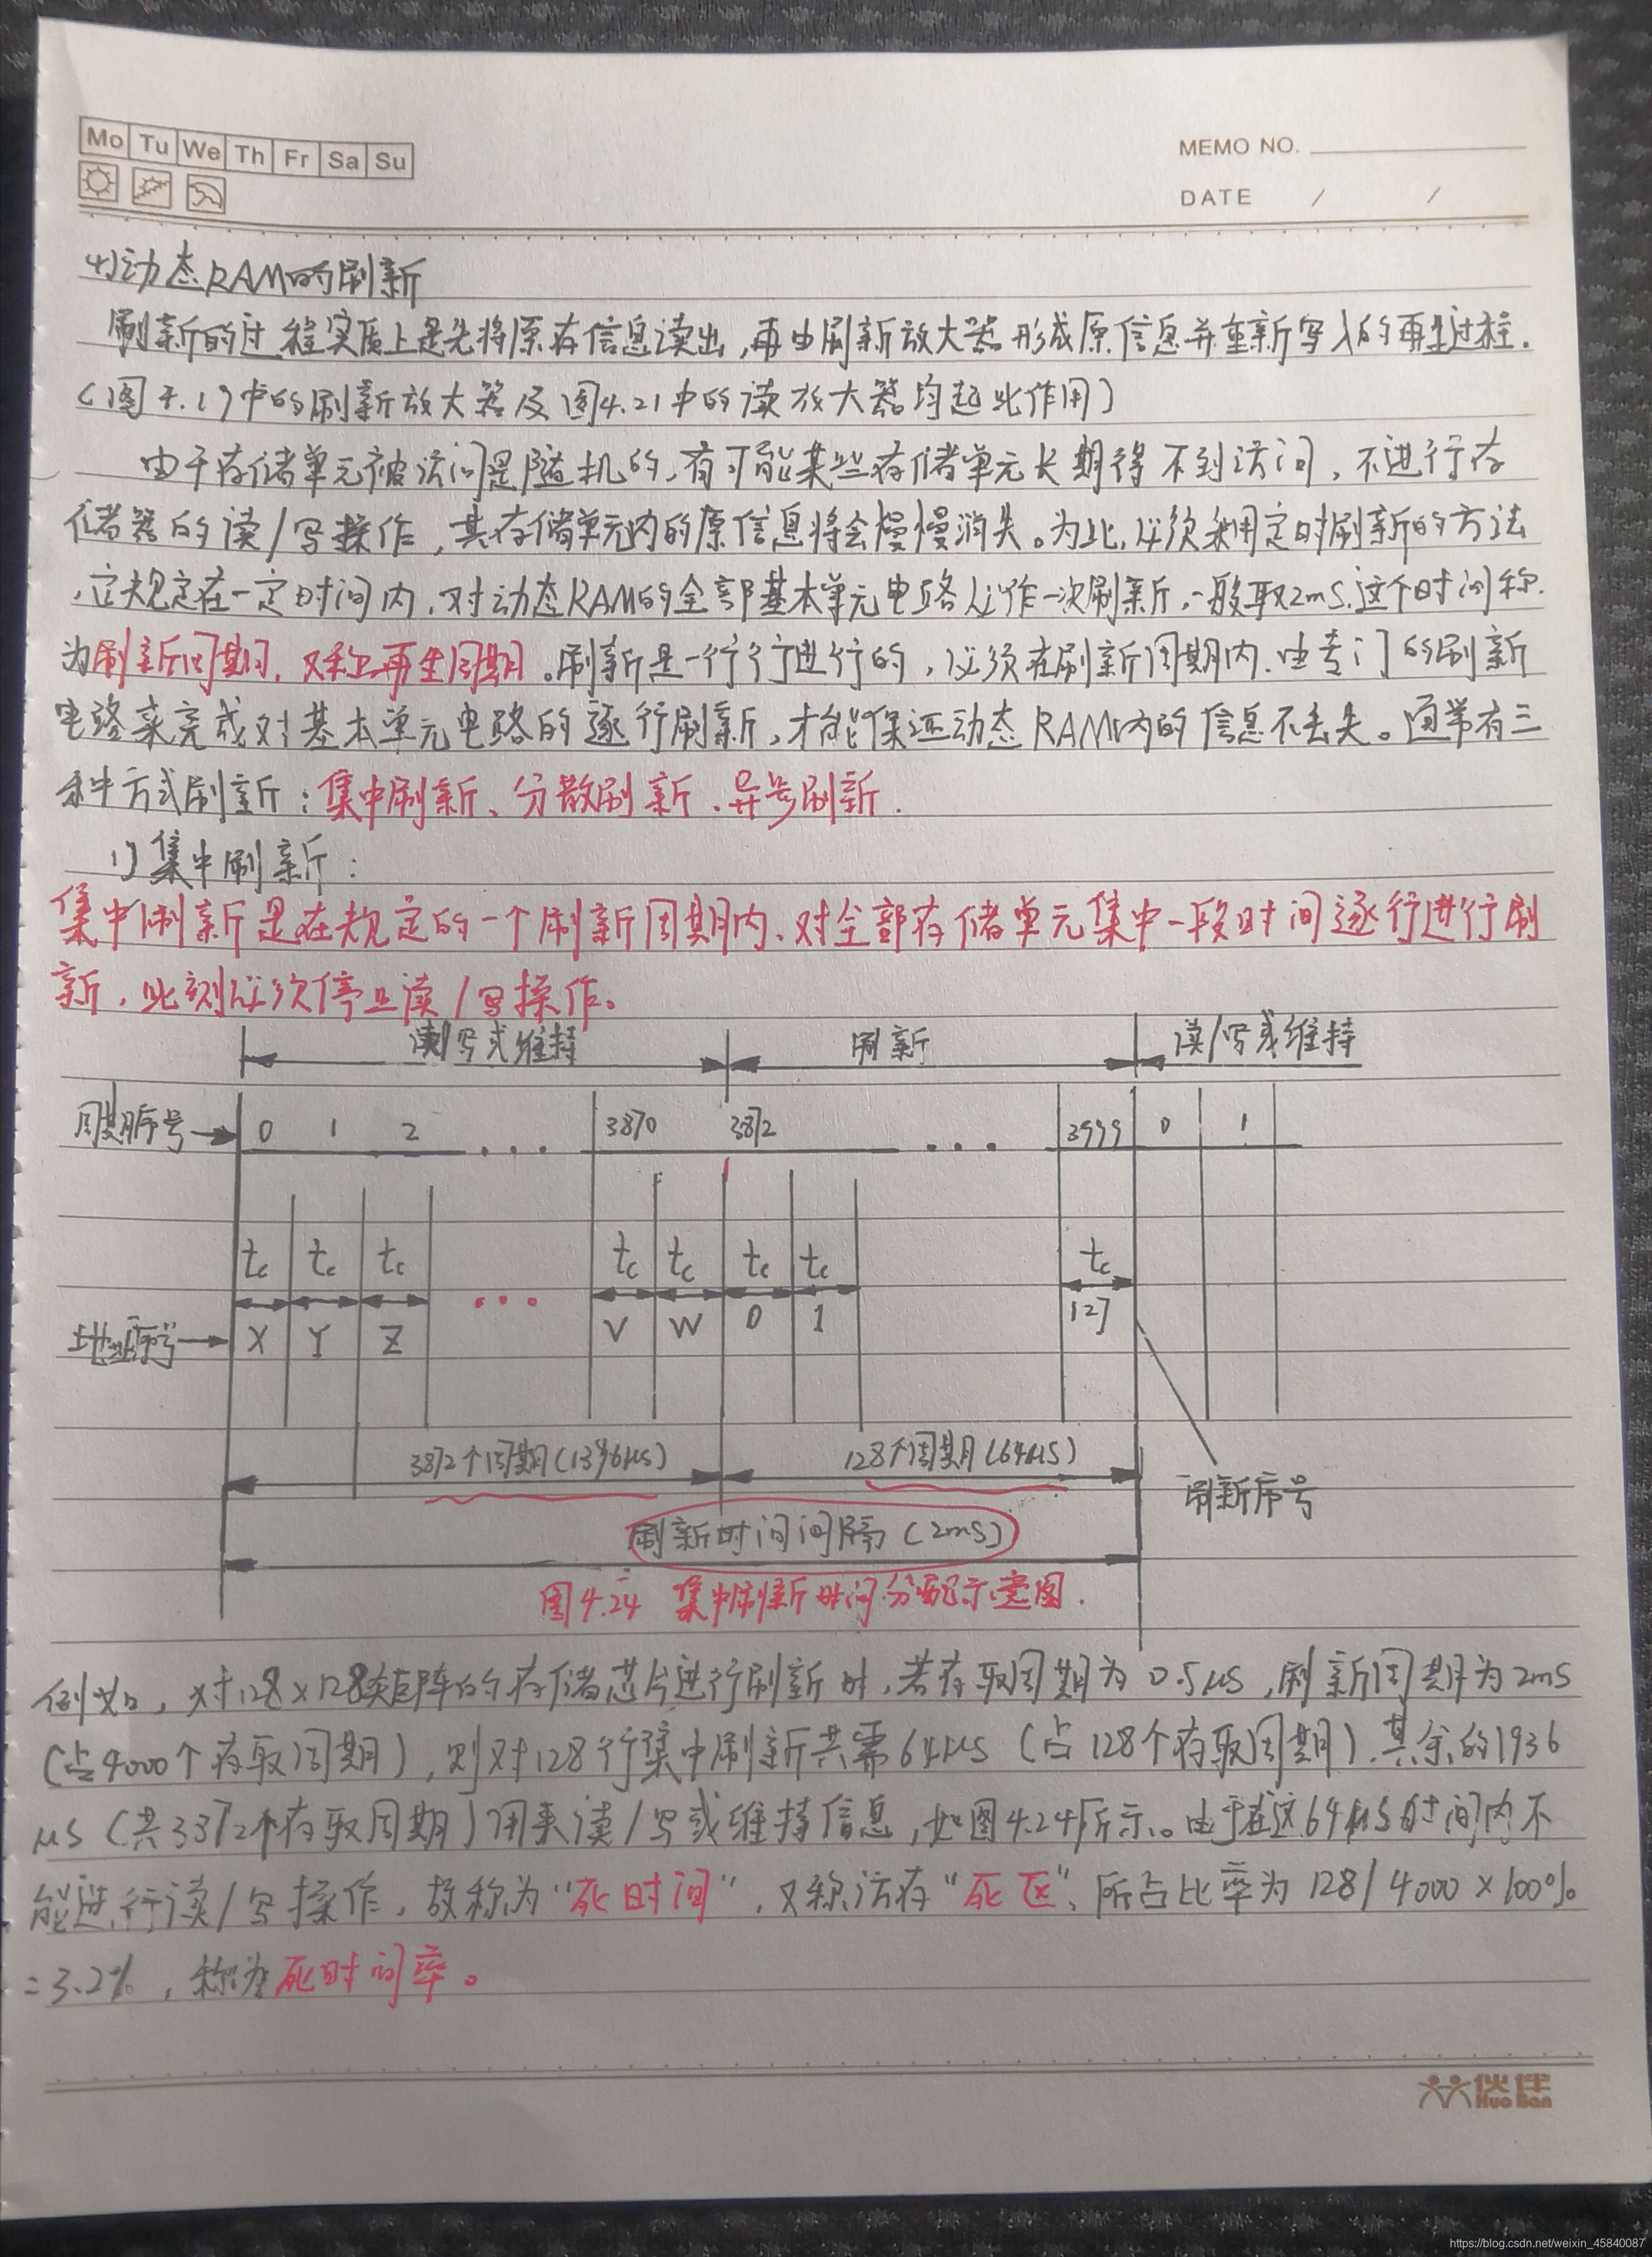 Mo Tu We Th Fr Sa Su
MEMO NO.
DATE / /
4)动态RAM的刷新
刷新的过程实质上是先将原存信息读出,再由刷新放大器形成原信息并重新写入的再生过程.
(图4.19中的刷新放大器及图4.21中的读放大器均起此作用)
由于存储单元被访问是随机的,有可能某些存储单元长期得不到访问,不进行存
储器的读/写操作,其存储单元内的原信息将会慢慢消失。为此,必须采用定时刷新的方法
,它规定在一定时间内,对动态RAM的全部基本单元电路必作一次刷新,一般取2ms,这个时间称
为刷新周期,又称再生周期。刷新是一行行进行的,必须在刷新周期内,由专门的刷新
电路来完成对基本单元电路的逐行刷新,才能保证动态RAM内的信息不丢失。通常有三
种方式刷新:集中刷新、分散刷新、异步刷新.
1)集中刷新:
集中刷新是在规定的一个刷新周期内、对全部存储单元集中一段时间逐行进行刷
新,此刻必须停止读/写操作。
读/写或维持 刷新 读/写或维持
周期序号 0 1 2 ... 3870 3872 ... 3999 0 1
tc tc tc tc tc tc tc tc
地址序号 X Y Z ... V W 0 1 127
3872个周期(1396μs) 128个周期(64μs)
刷新序号
刷新时间间隔(2ms)
图4.24 集中刷新时间分配示意图.
例如,对128×128矩阵的存储芯片进行刷新时,若存取周期为0.5μs,刷新周期为2ms
(占4000个存取周期),则对128行集中刷新共需64μs(占128个存取周期),其余的1936
μs(共3372个存取周期)用来读/写或维持信息,如图4.24所示。由于在这64μs时间内不
能进行读/写操作,故称为“死时间”,又称访存“死区”,所占比率为128/4000×100%
=3.2%,称为死时间率。
伙伴
Huo Ban
https://blog.csdn.net/weixin_45840087